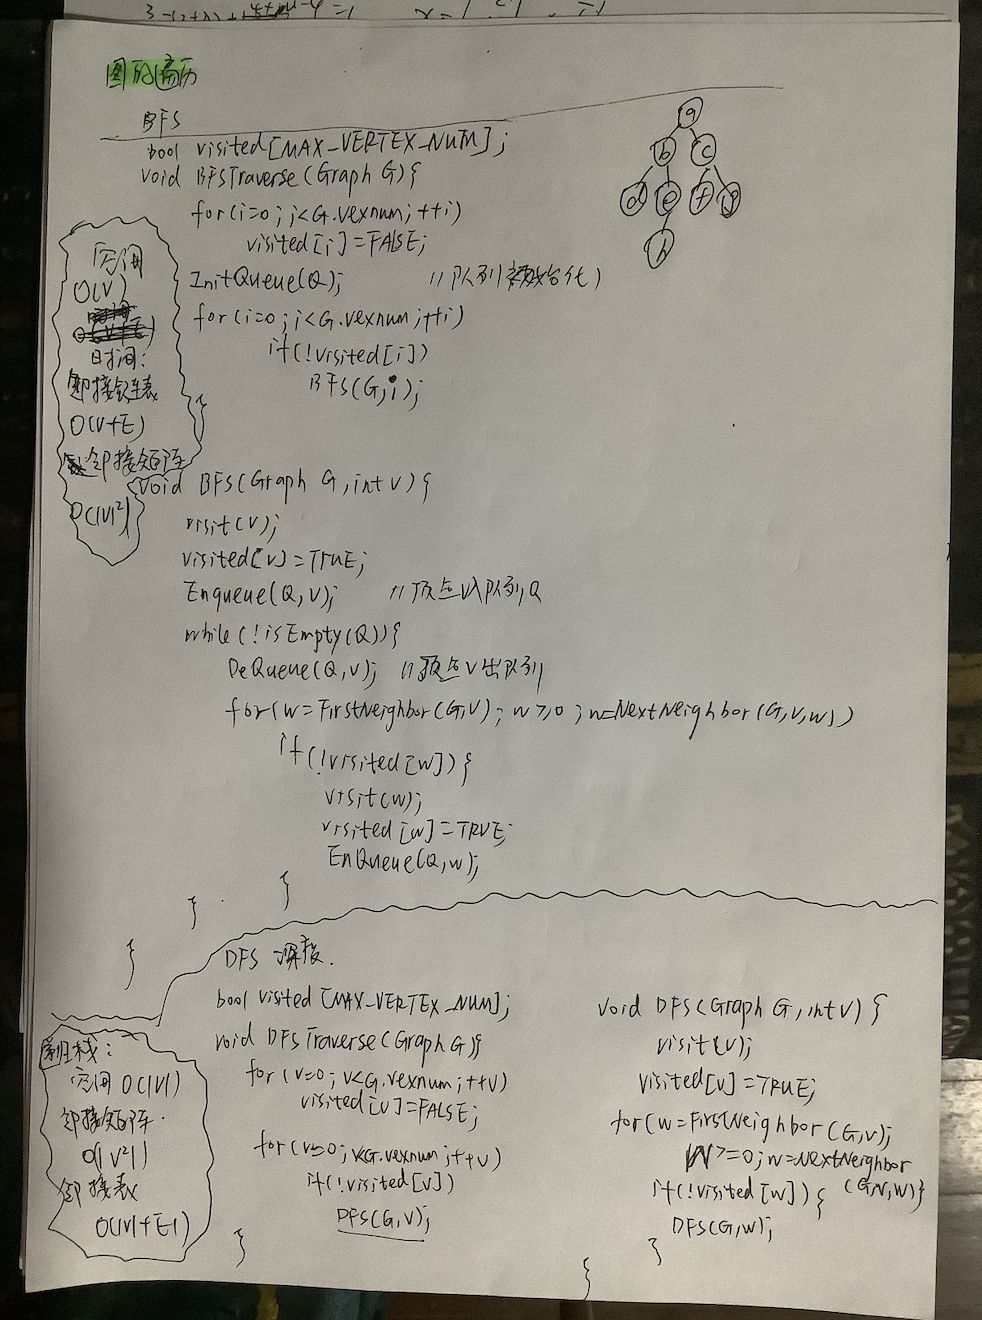 图的遍历
BFS
bool visited[MAX_VERTEX_NUM];
void BFSTraverse(Graph G){
for(i=0;i<G.vexnum;++i)
visited[i]=FALSE;
InitQueue(Q); //队列初始化
for(i=0;i<G.vexnum;++i)
if(!visited[i])
BFS(G,i);
}
a
b c
d e f g
h
空间
O(V)
时间:
邻接链表
O(V+E)
邻接矩阵
O(|V|²)
void BFS(Graph G,int v){
visit(v);
visited[v]=TRUE;
Enqueue(Q,v); //顶点v入队列Q
while(!isEmpty(Q)){
DeQueue(Q,v); //顶点v出队列
for(w=FirstNeighbor(G,v);w≥0;w=NextNeighbor(G,v,w))
if(!visited[w]){
visit(w);
visited[w]=TRUE;
EnQueue(Q,w);
}
}
}
DFS 深搜.
bool visited[MAX_VERTEX_NUM];
void DFSTraverse(Graph G){
for(v=0;v<G.vexnum;++v)
visited[v]=FALSE;
for(v=0;v<G.vexnum;++v)
if(!visited[v])
DFS(G,v);
}
void DFS(Graph G,int v){
visit(v);
visited[v]=TRUE;
for(w=FirstNeighbor(G,v);
w>=0;w=NextNeighbor
(G,v,w)}
if(!visited[w]){
DFS(G,w);
}
}
栈:
空间O(|V|)
邻接矩阵.
O(|V²|)
邻接表
O(|V|+|E|)